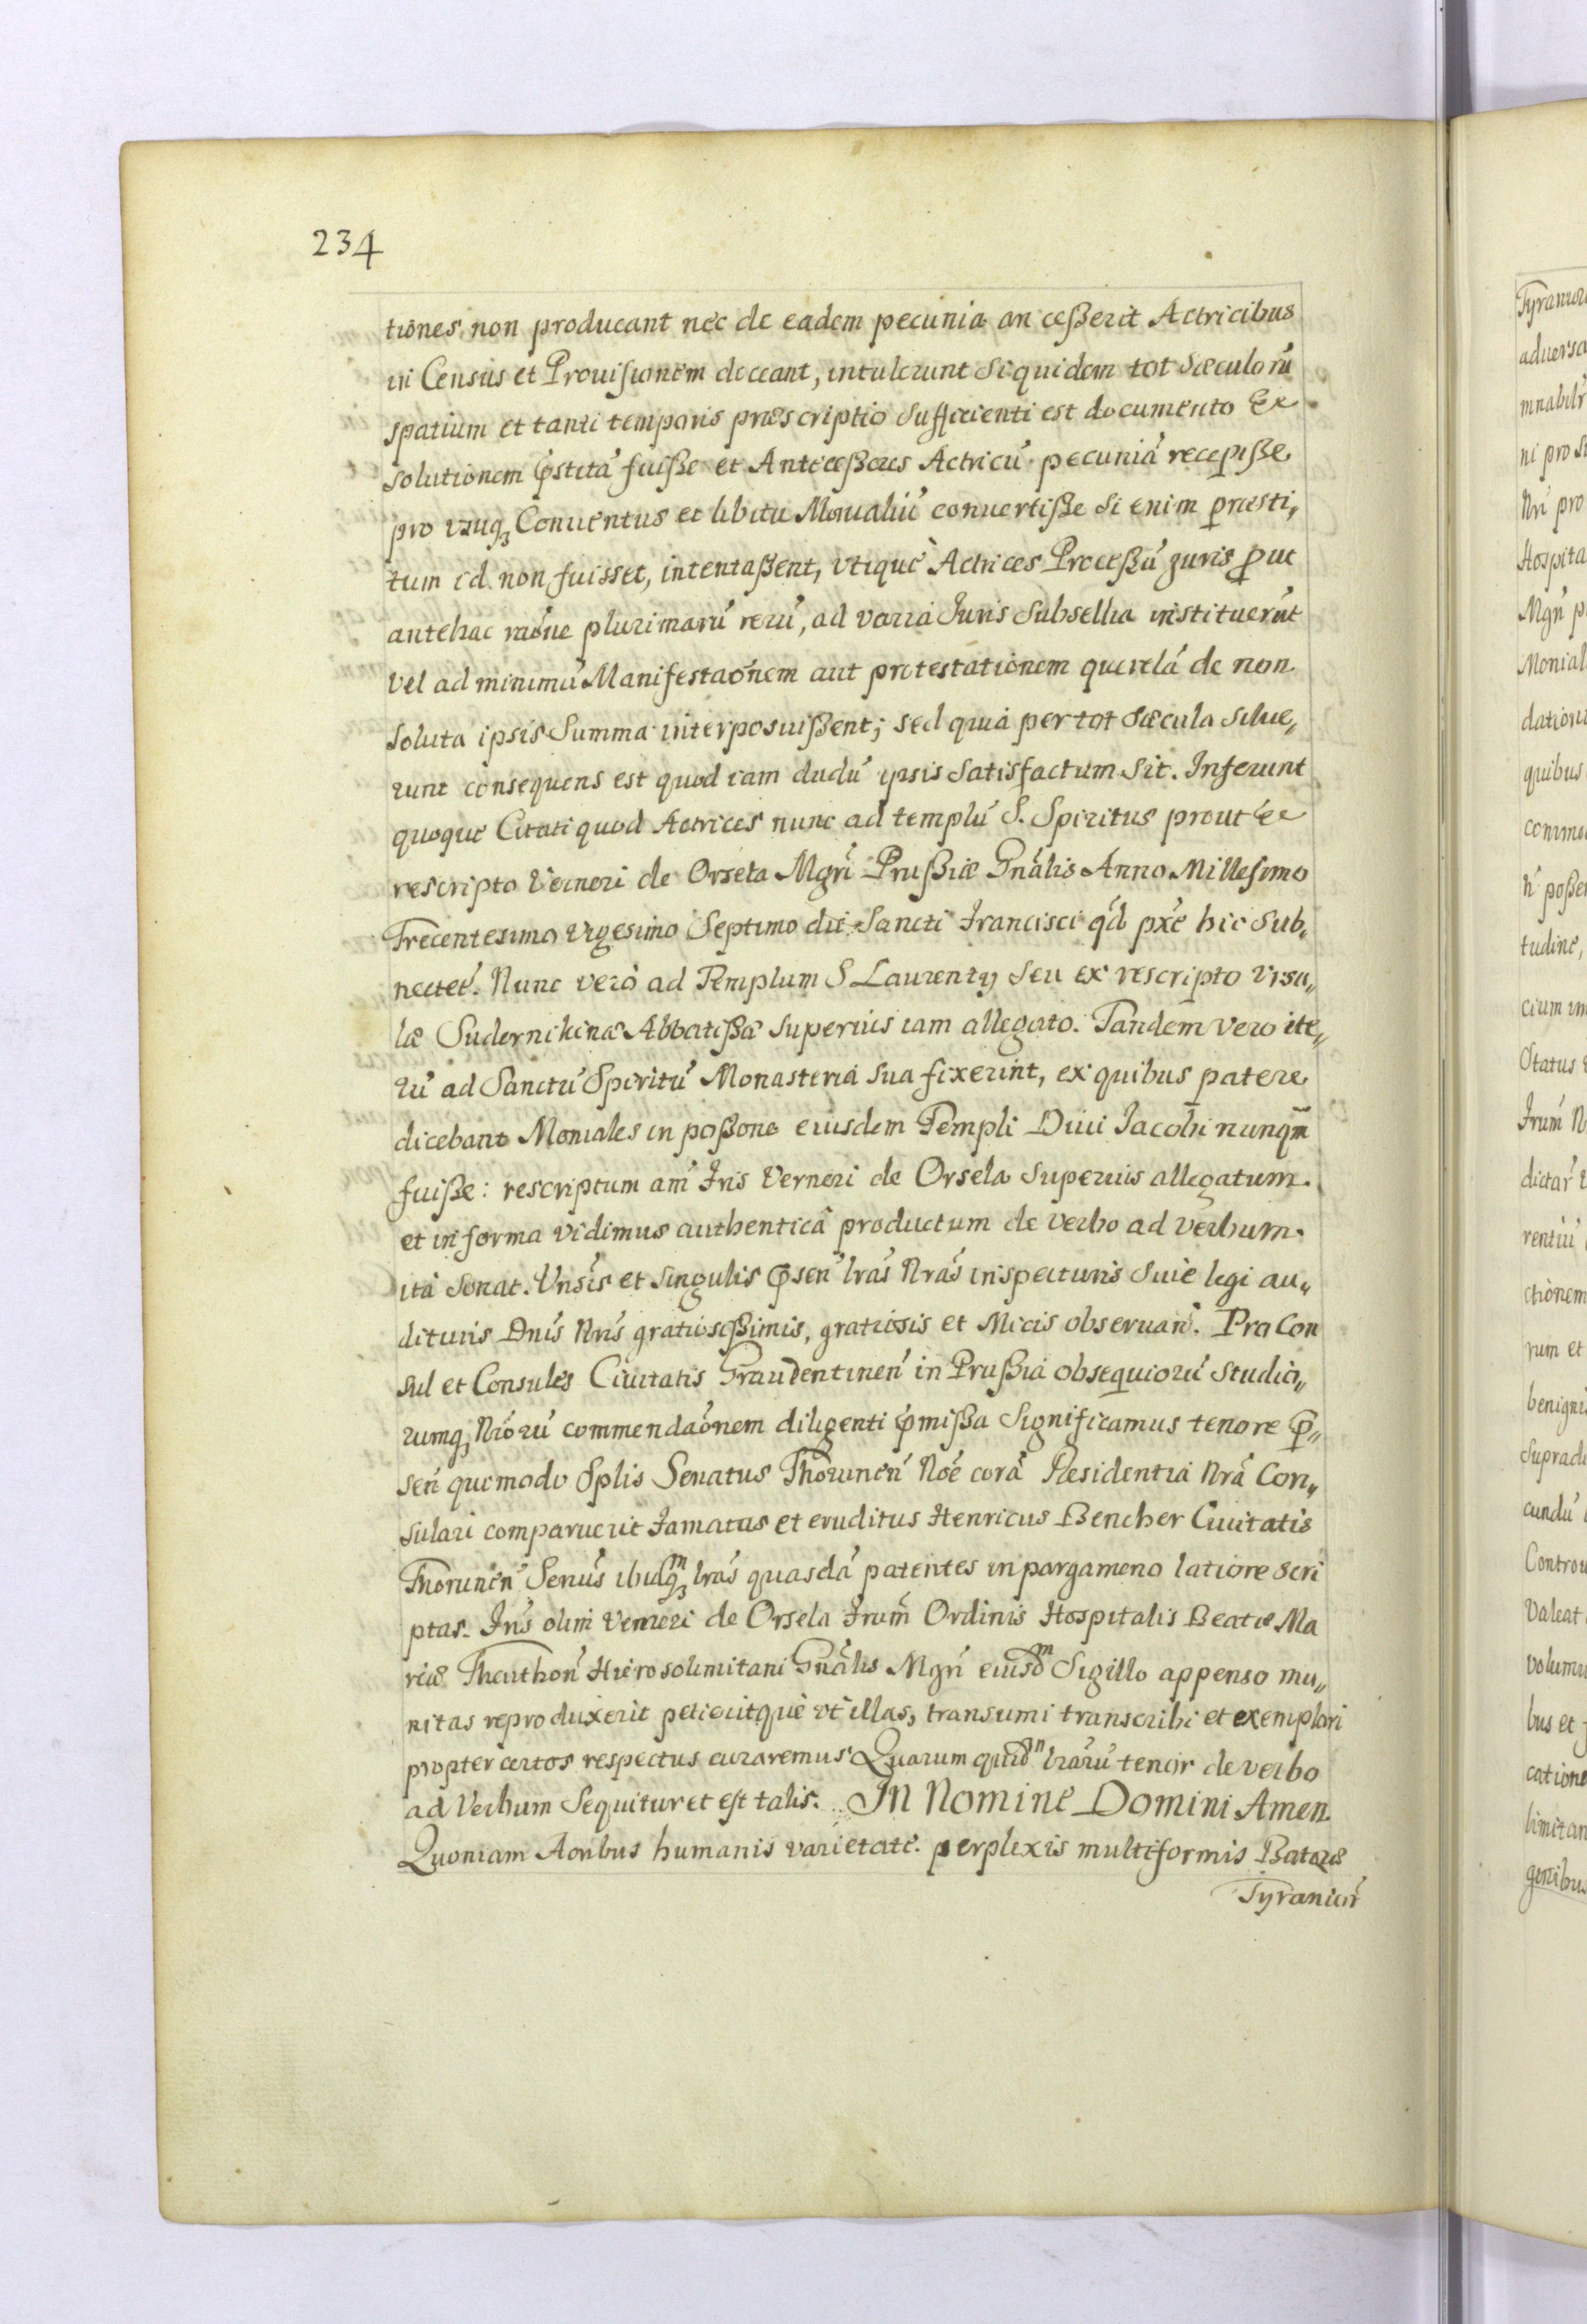 234
tiones, non producant nec de eadem pecunia an ceßerit Actricibus
in Census et Prouisionem doceant, intulerunt Siquidem tot Sæculorū
spatium et tanti temporis præscriptio Sufficienti est documento Ex
solutionem p̄stitā fuiße et Anteceßores Actricū pecuniā recepiße
pro vsuq₃ Conuentus et libitu Monialiū conuertiße Si enim præsti,
tum id non fuisset, intentaßent, vtiquè Actrices Proceßū Juris prout
antehac raōne plurimarū rerū, ad varia Juris Subsellia instituerūt
vel ad minimū Manifestaōnem aut protestationem querelā de non
soluta ipsis Summa interposuißent; sed quia per tot Sæcula silue„
runt consequens est quod iam dudū ipsis Satisfactum Sit. Inferunt
quoque Citati quod Actrices nunc ad templū S. Spiritus prout ex
rescripto Verneri de Orsela Mgrī Prußiæ Gnālis Anno Millesimo
Trecentesimo vigesimo Septimo die Sancti Francisci qd́ px̄e hic Sub„
nectet́. Nunc verò ad Templum S Laurentij Seu ex rescripto Vrsu„
læ Sudernikinæ Abbatißæ Superiùs iam allegato. Tandem vero ite„
rū ad Sanctū Spiritū Monasteria Sua fixerint, ex quibus patere
dicebant Moniales in poßone eiusdem Templi Diui Jacobi nunqm̄
fuiße: rescriptum am̄ Fris Verneri de Orsela Superiùs allegatum
et in forma vidimus authenticâ productum de verbo ad verbum
ita Sonat. Vnsīs et Singulis p̄sen̄ lrās Nrās inspecturis Siue legi au„
dituris Dnīs Nrīs gratiosißimis, gratiosis et Micis obseruan̄. Pro Con
sul et Consules Ciuitatis Graudentinen̄ in Prußia obsequiorū Studio„
rumq₃ Nrōrū commendaōnem diligenti p̄mißa Significamus tenore p̄„
sen̄ quomodo Splis Senatus Thorunen̄ Nōe corā Residentia Nrā Con„
sulari comparuerit Famatus et eruditus Henricus Bencher Ciuitatis
Thorunen̄ Senūs ibidq₃ᵐ lrās quasdā patentes in pargameno latiore scri
ptas. Fris olim Verneri de Orsela Frum̄ Ordinis Hospitalis Beatæ Ma
riæ Theuthon̄ Hierosolimitani Gnālis Mgrī eiusdᵐ Sigillo appenso mu„
nitas reproduxerit petieritquè vt illas, transumi transcribi et exemplari
propter certos respectus curaremus Quarum quidᵐ lrārū tenor de verbo
ad Verbum Sequitur et est talis. IN Nomine Domini Amen
Quoniam Aōnibus humanis varietate perplexis multiformis
Tyranior̄